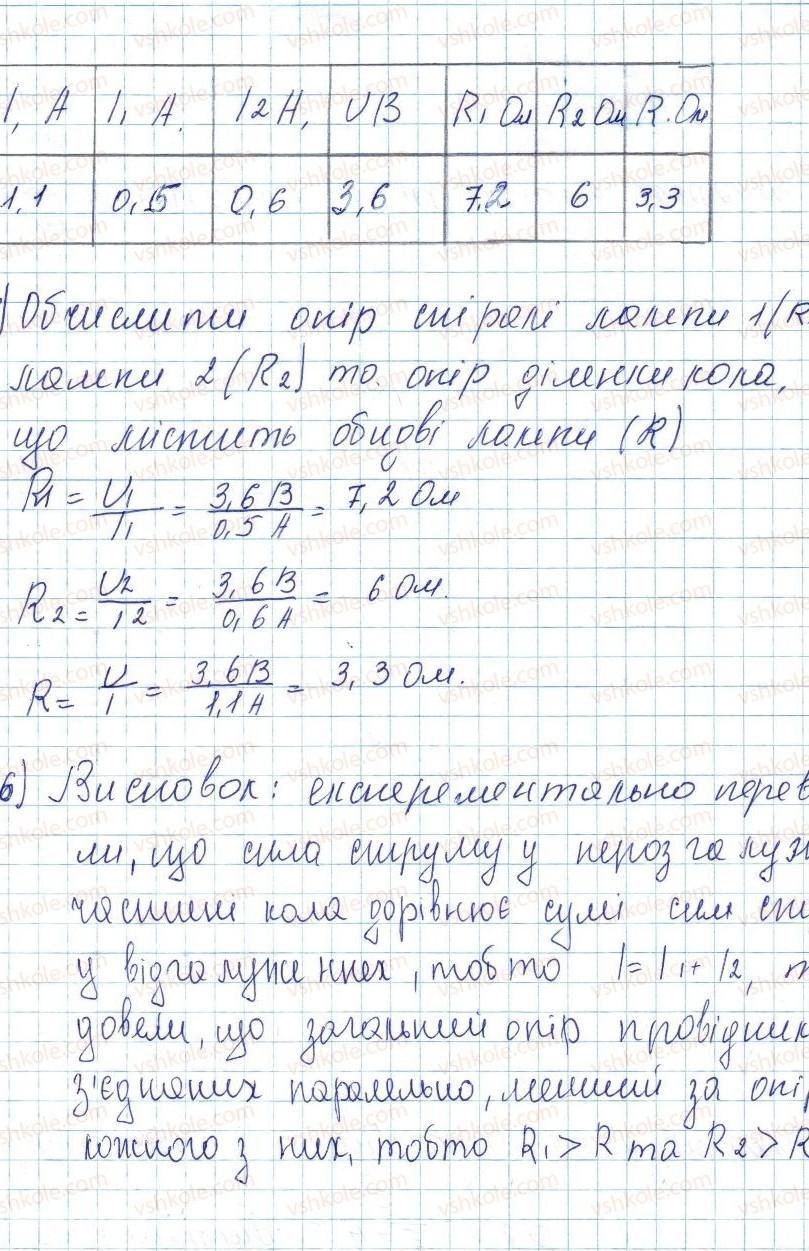 I, А I₁ А. I2 А, U В R₁ Ом R2 Ом R. Ом
1,1 0,5 0,6 3,6 7,2 6 3,3
) Обчислити опір спіралі лампи 1(R
лампи 2(R2) та опір ділянки кола,
що містить обидві лампи (R)
R1 = U₁/I₁ = 3,6 В/0,5 А = 7,2 Ом
R2 = U2/I2 = 3,6 В/0,6 А = 6 Ом.
R = U/I = 3,6 В/1,1 А = 3,3 Ом.
6) Висновок: експерементально перев
ли, що сила струму у нерозгалуж
частині кола дорівнює сумі сил ст
у відгалуженнях, тобто I = I₁ + I2, т
довели, що загальний опір провідник
з'єднаних паралельно, менший за опір
кожного з них, тобто R₁ > R та R2 > R
vshkole.com